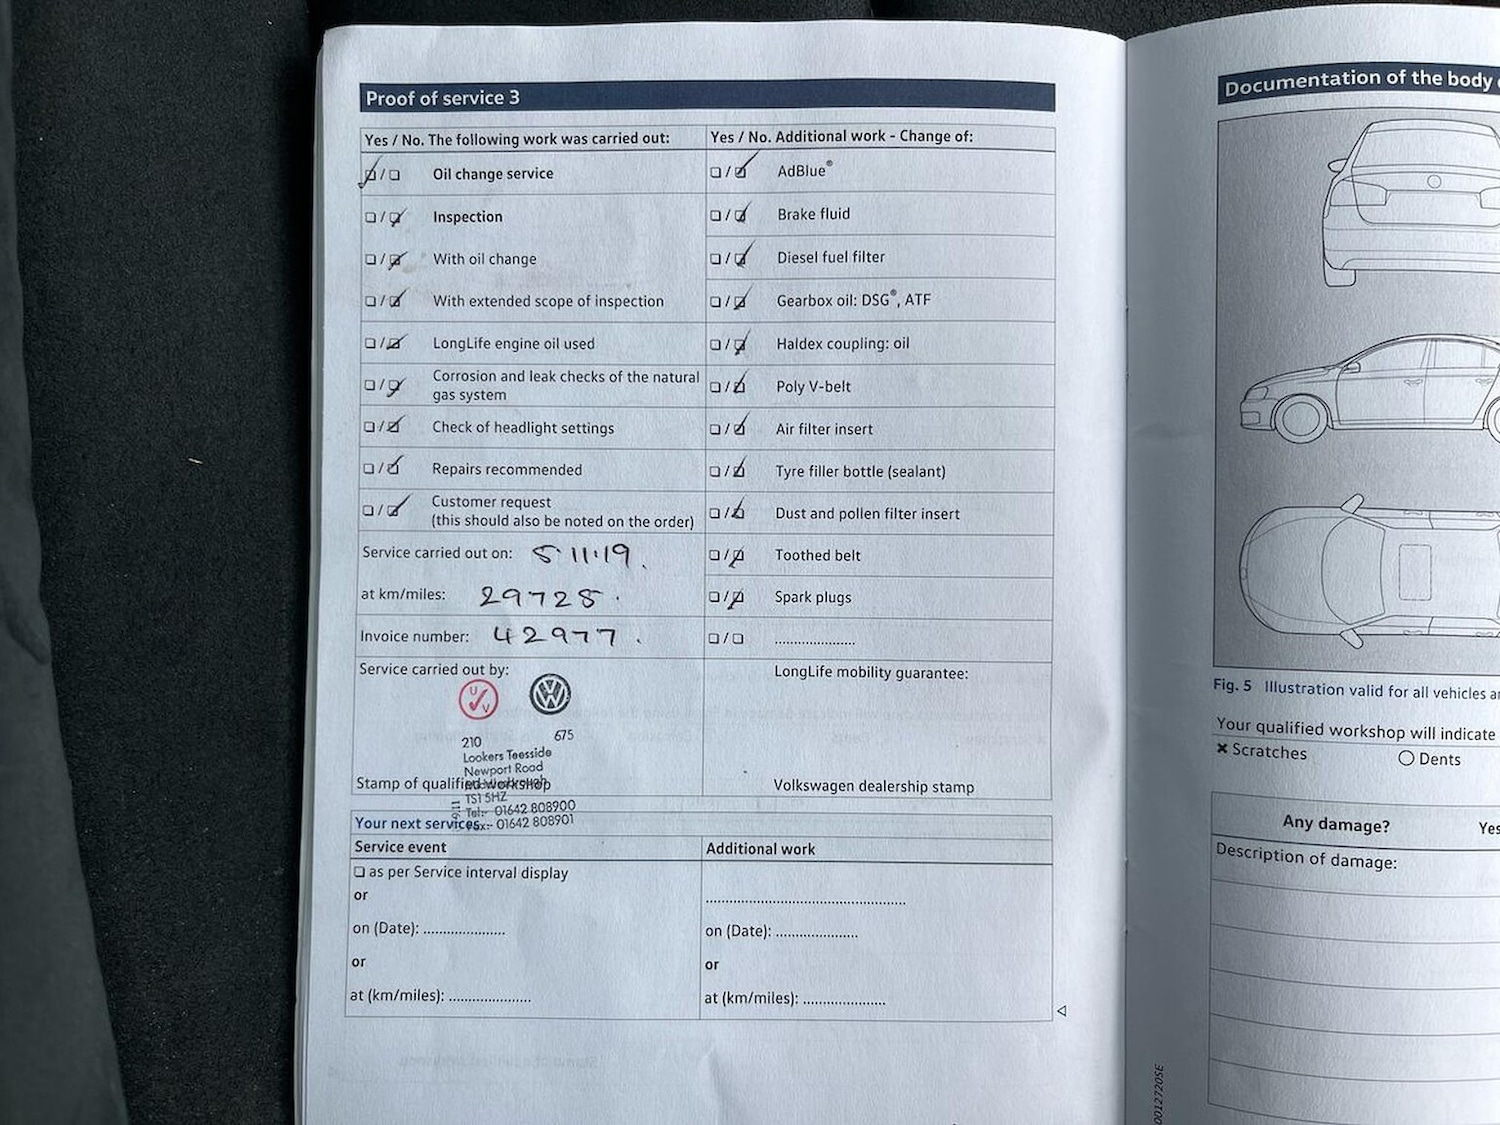 Proof of service 3
Yes / No. The following work was carried out:
Oil change service
Inspection
With oil change
With extended scope of inspection
LongLife engine oil used
Corrosion and leak checks of the natural
gas system
Check of headlight settings
Repairs recommended
Customer request
(this should also be noted on the order)
Service carried out on: 5.11.19.
at km/miles: 29725.
Invoice number: 42977.
Service carried out by:
210 675
Lookers Teesside
Newport Road
Stamp of qualified workshop
TS1 5HZ
Tel:- 01642 808900
Fax:- 01642 808901
Yes / No. Additional work - Change of:
AdBlue®
Brake fluid
Diesel fuel filter
Gearbox oil: DSG®, ATF
Haldex coupling: oil
Poly V-belt
Air filter insert
Tyre filler bottle (sealant)
Dust and pollen filter insert
Toothed belt
Spark plugs
LongLife mobility guarantee:
Volkswagen dealership stamp
Your next services
Service event
as per Service interval display
or
on (Date):
or
at (km/miles):
Additional work
on (Date):
or
at (km/miles):
Documentation of the body
Fig. 5 Illustration valid for all vehicles
Your qualified workshop will indicate
Scratches
Dents
Any damage? Yes
Description of damage: